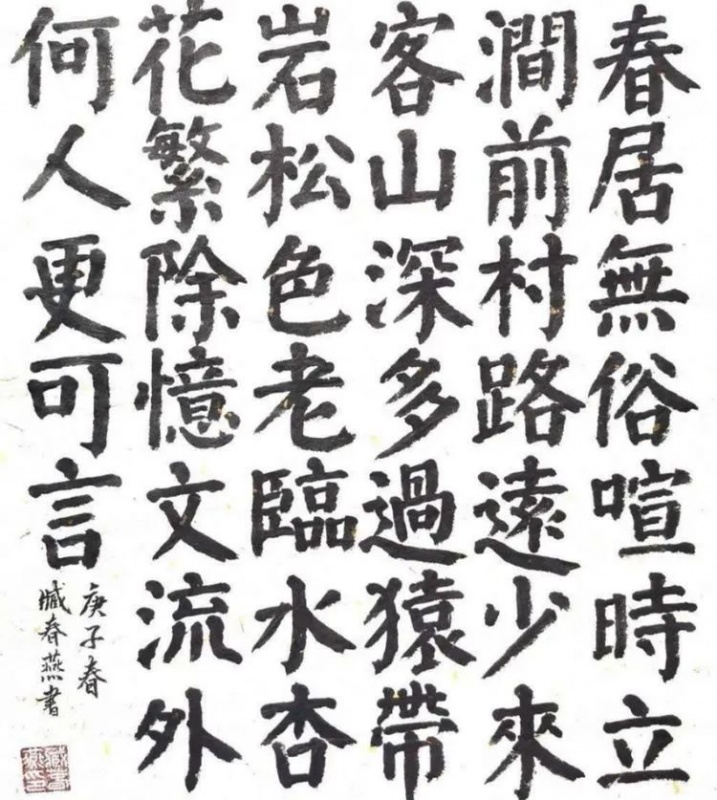 春居無俗喧時立
澗前村路遠少來
客山深多過猿帶
岩松色老臨水杏
花繁除憶文流外
何人更可言
庚子春
臧春燕書